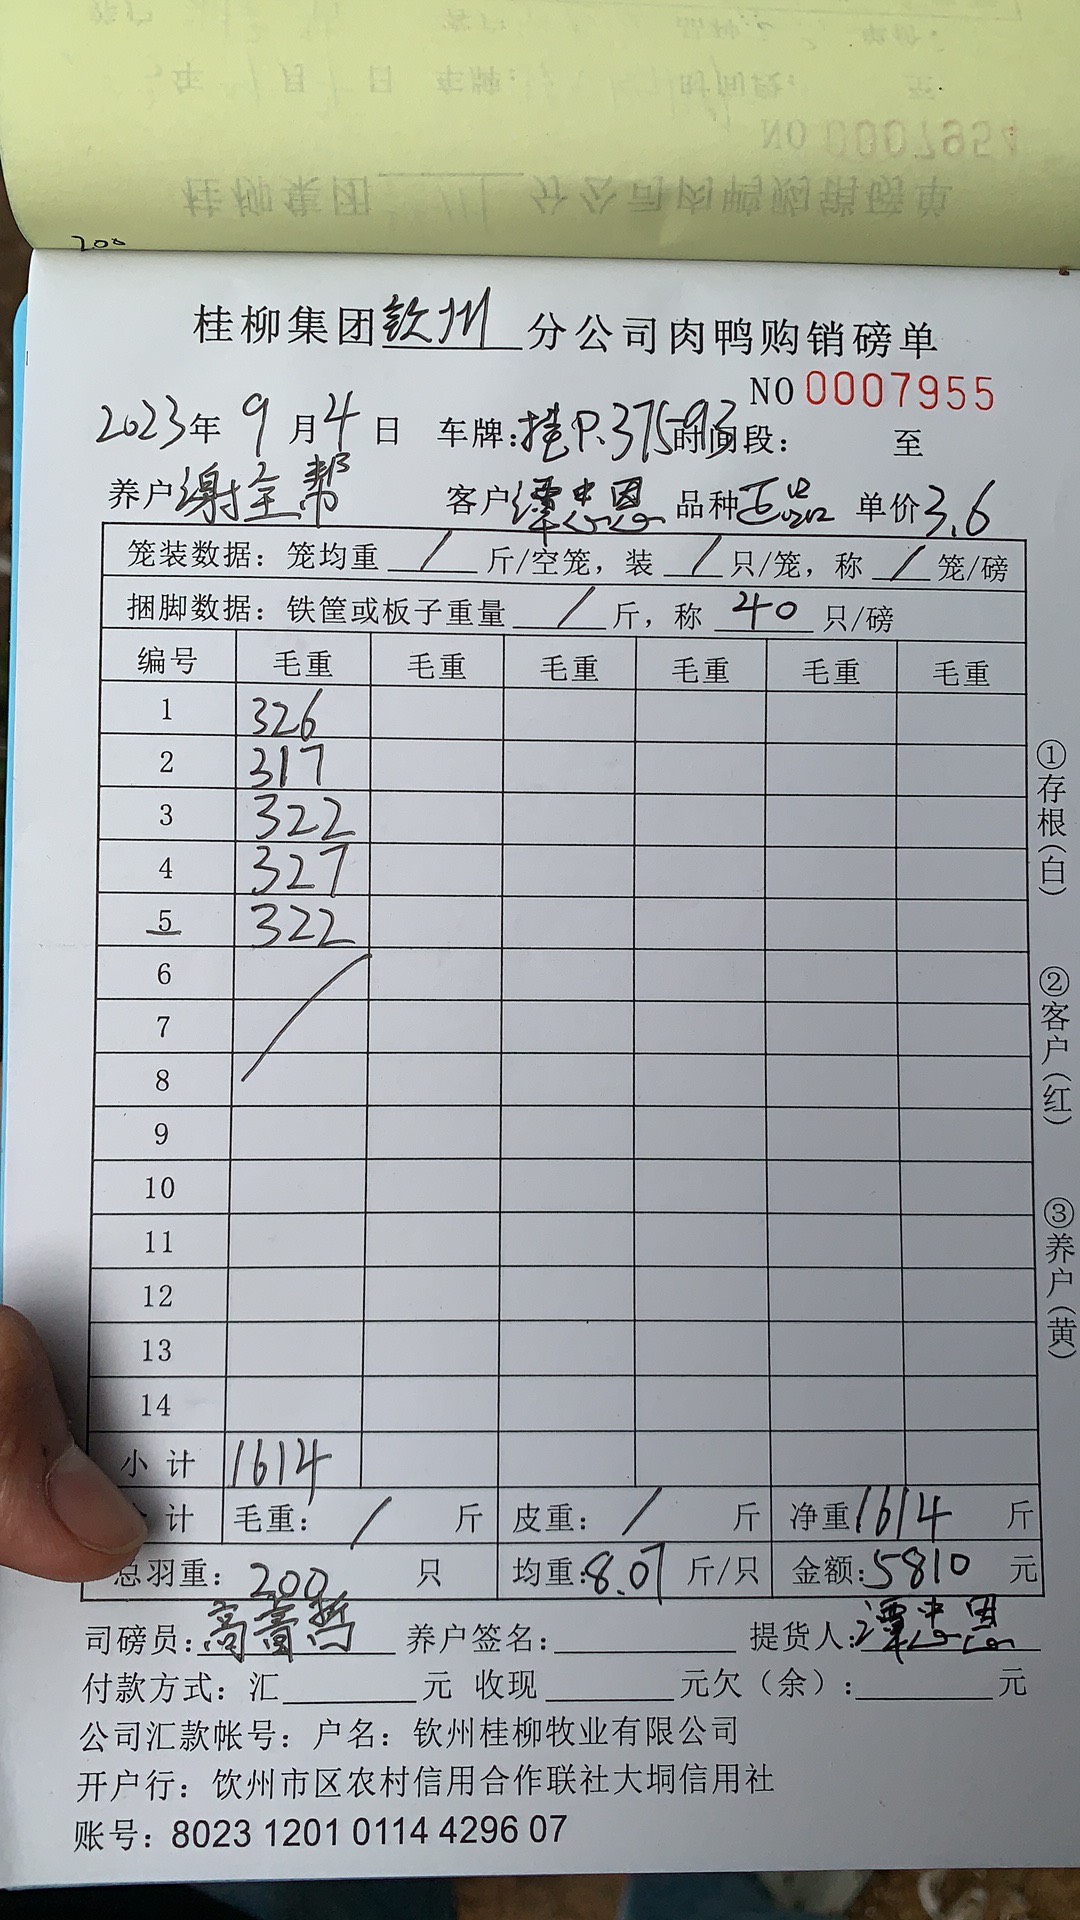 200
桂柳集团钦州分公司肉鸭购销磅单
NO 0007955
2023年 9月4日 车牌:桂P.37593 时间段: 至
养户谢全帮 客户谭忠恩 品种正品 单价3.6
笼装数据: 笼均重 / 斤/空笼, 装 / 只/笼, 称 / 笼/磅
捆脚数据: 铁筐或板子重量 / 斤, 称 40 只/磅
编号 毛重 毛重 毛重 毛重 毛重 毛重
1 326
2 317
3 322
4 327
5 322
6
7
8
9
10
11
12
13
14
小计 1614
计 毛重: / 斤 皮重: / 斤 净重1614 斤
总羽重: 200 只 均重:8.07 斤/只 金额:5810 元
司磅员: 高 养户签名: 提货人:谭忠恩
付款方式: 汇 元 收现 元欠(余): 元
公司汇款帐号: 户名: 钦州桂柳牧业有限公司
开户行: 钦州市区农村信用合作联社大垌信用社
账号: 8023 1201 0114 4296 07
①存根(白)
②客户(红)
③养户(黄)